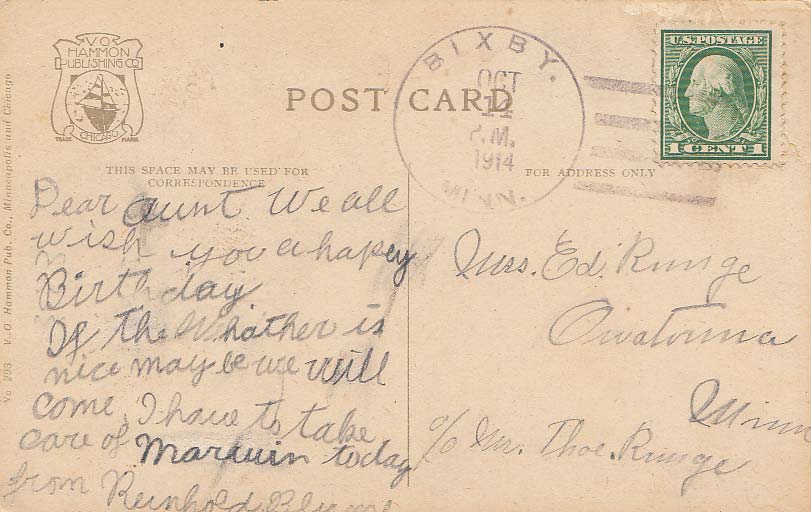 V.O.
HAMMON
PUBLISHING CO
CHICAGO
TRADE MARK
POST CARD
BIXBY.
OCT
14
P.M.
1914
MINN.
U.S. POSTAGE
1 CENT 1
THIS SPACE MAY BE USED FOR
CORRESPONDENCE
FOR ADDRESS ONLY
No 293 V. O. Hammon Pub. Co., Minneapolis and Chicago
Dear aunt We all
wish you a hapey
Birthday
If the Whather is
nice may be we will
come, I have to take
care of Marwin today
from Reinhold Blume
Mrs. Ed. Runge
Owatonna
Minn
c/o Mr. Thoe. Runge